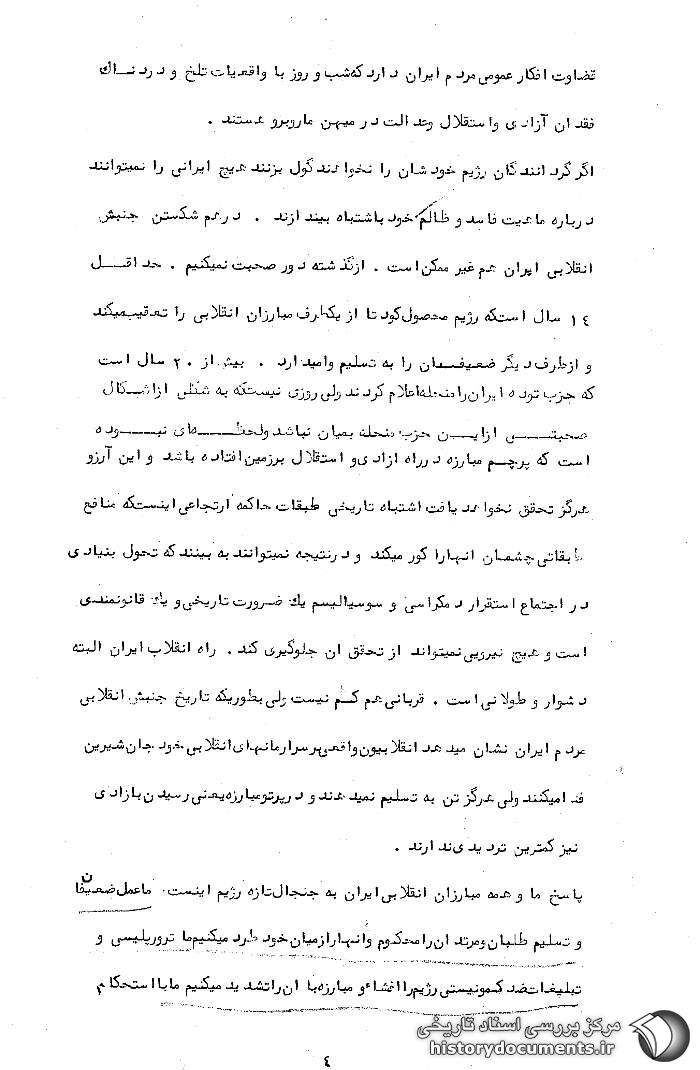 قضاوت افکار عمومی مردم ایران دارد که شب و روز با واقعیات تلخ و دردناك
فقدان آزادی و استقلال وعدالت در میهن ما روبرو هستند .
اگر گردانندگان رژیم خودشان را نخواهند گول بزنند هیچ ایرانی را نمیتوانند
درباره ماهیت فاسد و ظالم خود باشتباه بیندازند . درهم شکستن جنبش
انقلابی ایران هم غیر ممکن است . ازگذشته دور صحبت نمیکنیم . حداقل
١٤ سال استکه رژیم محصول کودتا از یکطرف مبارزان انقلابی را تعقیب میکند
و ازطرف دیگر ضعیفان را به تسلیم وامیدارد . بیش از ٢٠ سال است
که حزب توده ایران را منحله اعلام کردند ولی روزی نیستکه به شکلی ازاشکال
صحبتی ازاین حزب منحله بمیان نباشد ولحظه‌ای نبوده
است که پرچم مبارزه درراه ازادی و استقلال برزمین افتاده باشد و این آرزو
هرگز تحقق نخواهد یافت اشتباه تاریخی طبقات حاکمه ارتجاعی اینستکه منافع
طبقاتی چشمان انهارا کور میکند و درنتیجه نمیتوانند به بینند که تحول بنیادی
در اجتماع استقرار دمکراسی و سوسیالیسم یك ضرورت تاریخی و یك قانونمندی
است و هیچ نیرویی نمیتواند از تحقق ان جلوگیری کند . راه انقلاب ایران البته
دشوار و طولانی است . قربانی هم کم نیست ولی بطوریکه تاریخ جنبش انقلابی
مردم ایران نشان میدهد انقلابیون واقعی برسر ارمانهای انقلابی خود جان شیرین
فدا میکنند ولی هرگز تن به تسلیم نمیدهند و درپرتو مبارزه یعنی رسیدن بازادی
نیز کمترین تردیدی ندارند .
پاسخ ما و همه مبارزان انقلابی ایران به جنجال تازه رژیم اینست . ما عمل ضعیفان
و تسلیم طلبان و مرتدان را محکوم وانهارا ازمیان خود طرد میکنیم ما ترور پلیسی و
تبلیغات ضد کمونیستی رژیم را افشاء و مبارزه با ان را تشدید میکنیم ما با استحکام
مرکز بررسی اسناد تاریخی
historydocuments.ir
٤